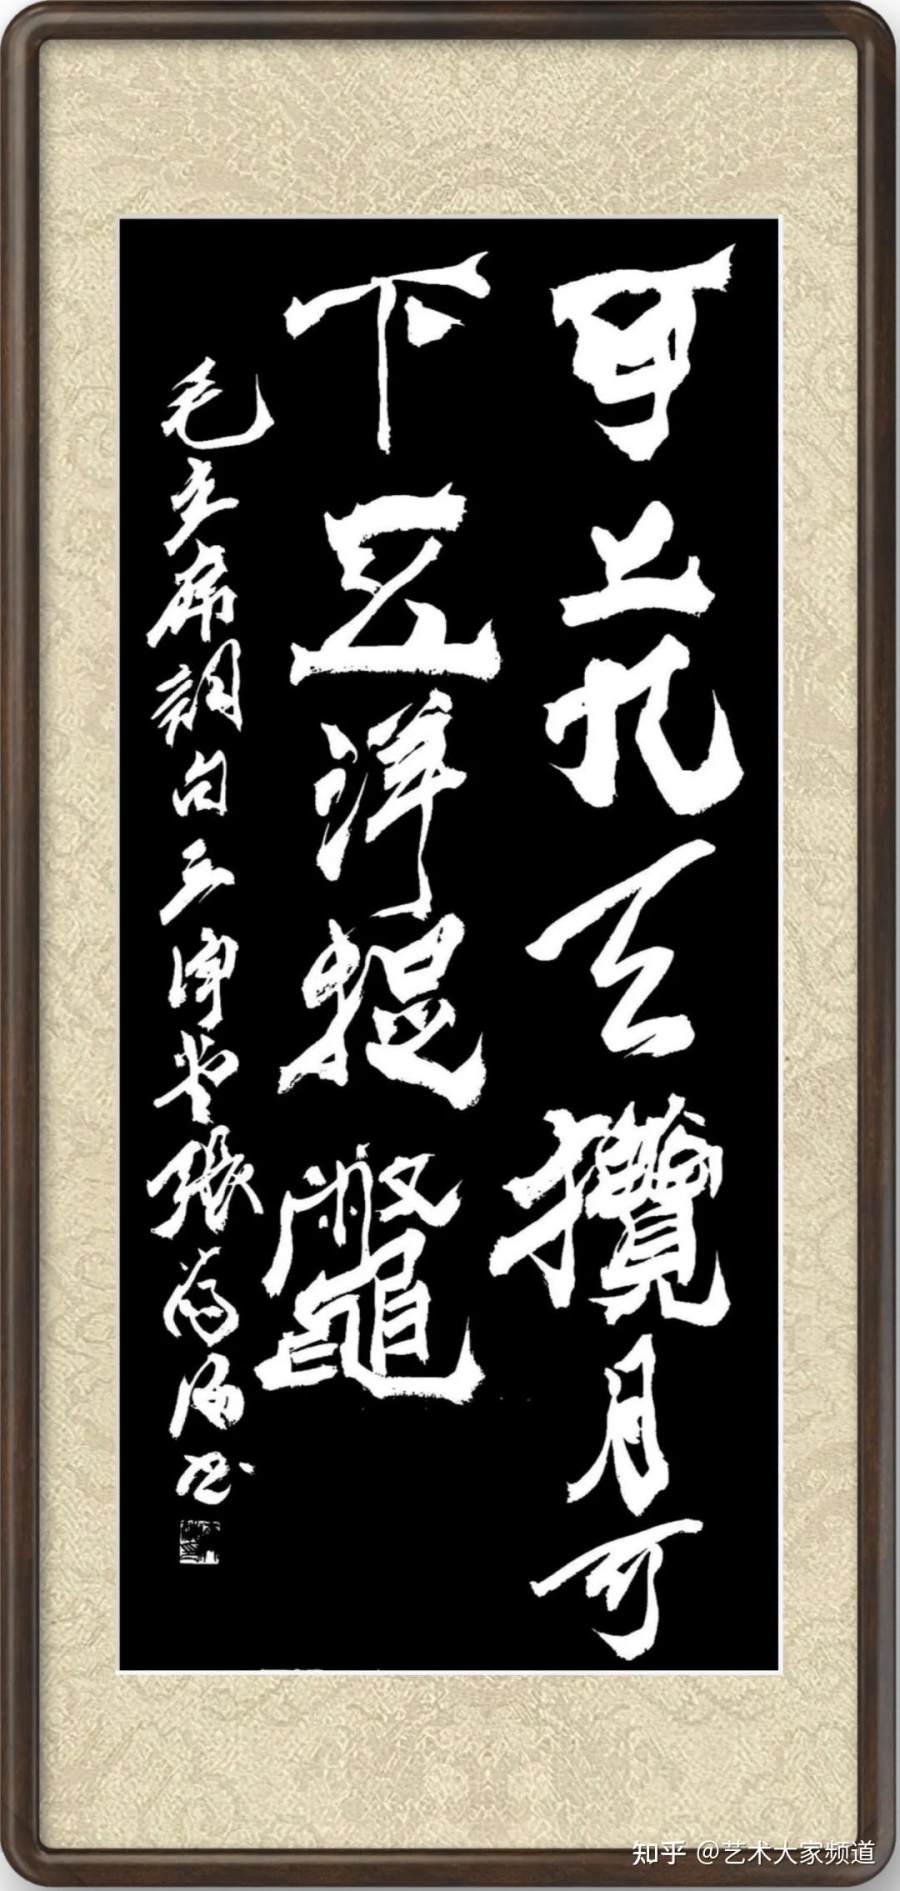 可上九天攬月可
下五洋捉鼈
毛主席詞句三净堂張
知乎 @艺术大家频道